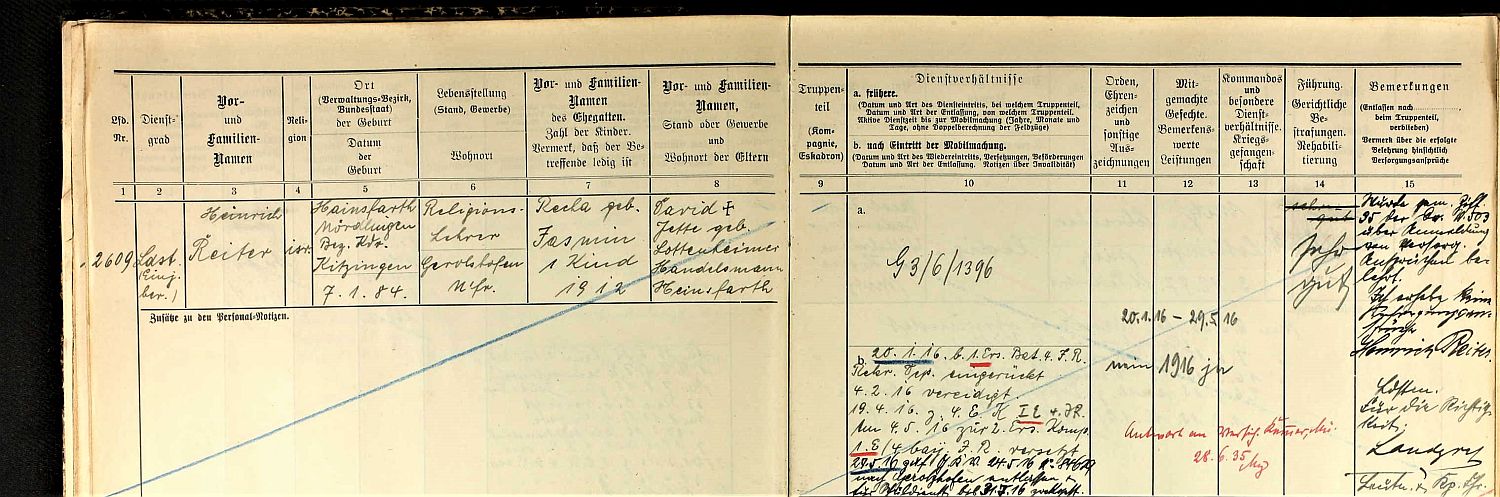 Lfd. Nr.
Dienst-
grad
Vor-
und
Familien-
Namen
Reli-
gion
Ort
(Verwaltungs-Bezirk,
Bundesstaat)
der Geburt
Datum
der
Geburt
Lebensstellung
(Stand, Gewerbe)
Wohnort
Vor- und Familien-
Namen
des Ehegatten.
Zahl der Kinder.
Vermerk, daß der Be-
treffende ledig ist
Vor- und Familien-
Namen,
Stand oder Gewerbe
und
Wohnort der Eltern
1 2 3 4 5 6 7 8
2609
Last.
(Einj.
ber.)
Heinrich
Reiter
isr.
Hainsfarth
Nördlingen
Bez. Kdo.
Kitzingen
7. 1. 84.
Religions-
Lehrer
Gerolzhofen
Ufr.
Recha geb.
Jasmin
1 Kind
1912
David +
Jette geb.
Lottenheimer
Handelsmann
Heinsfarth
Zusätze zu den Personal-Notizen.
Truppen-
teil
(Kom-
pagnie,
Eskadron)
Dienstverhältnisse
a. frühere.
(Datum und Art des Diensteintritts, bei welchem Truppenteil,
Datum und Art der Entlassung, von welchem Truppenteil.
Aktive Dienstzeit bis zur Mobilmachung (Jahre, Monate und
Tage, ohne Doppelberechnung der Feldzüge)
b. nach Eintritt der Mobilmachung.
(Datum und Art des Wiedereintritts, Versetzungen, Beförderungen
Datum und Art der Entlassung. Notizen über Invalidität)
Orden,
Ehren-
zeichen
und
sonstige
Aus-
zeichnungen
Mit-
gemachte
Gefechte.
Bemerkens-
werte
Leistungen
Kommandos
und
besondere
Dienst-
verhältnisse.
Kriegs-
gefangen-
schaft
Führung.
Gerichtliche
Be-
strafungen.
Rehabili-
tierung
Bemerkungen
(Entlassen nach
beim Truppenteil,
verblieben)
Vermerk über die erfolgte
Belehrung hinsichtlich
Versorgungsansprüche
9 10 11 12 13 14 15
a.
G3/6/1396
b. 20. 1. 16. b. 1. Ers. Bat. 4. J. R.
Rekr. Dep. eingerückt
4. 2. 16 vereidigt.
19. 4. 16. z. 4. E. K. I E 4. JR.
Am 4. 5. 16 zur 2. Ers. Komp.
1. E/4 bay. J. R. versetzt
29.5.16 24.5.16
nach Gerolzhofen entlassen
20.1.16 – 29.5.16
nein 1916 ja
Antwort an
28.6.35
sehr
gut
sehr
gut
Wurde gem. Ziff.
35 der
über Anmeldung
von Versorg.
Ansprüchen be-
lehrt.
Ich erhebe keine
Versorgungsan-
sprüche
Heinrich Reiter.
Für die Richtig-
keit: